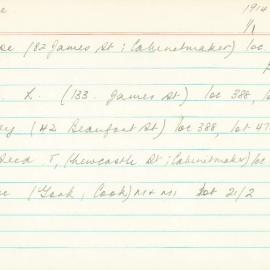 1914
(82 James St; Cabinetmaker) loc
L. (133 James St) loc 388, lo
ey (42 Beaufort St) loc 388, lot 47
Deed T, (Newcastle St; Cabinetmaker) loc
(York, Cook) M+M1 Lot 21/2